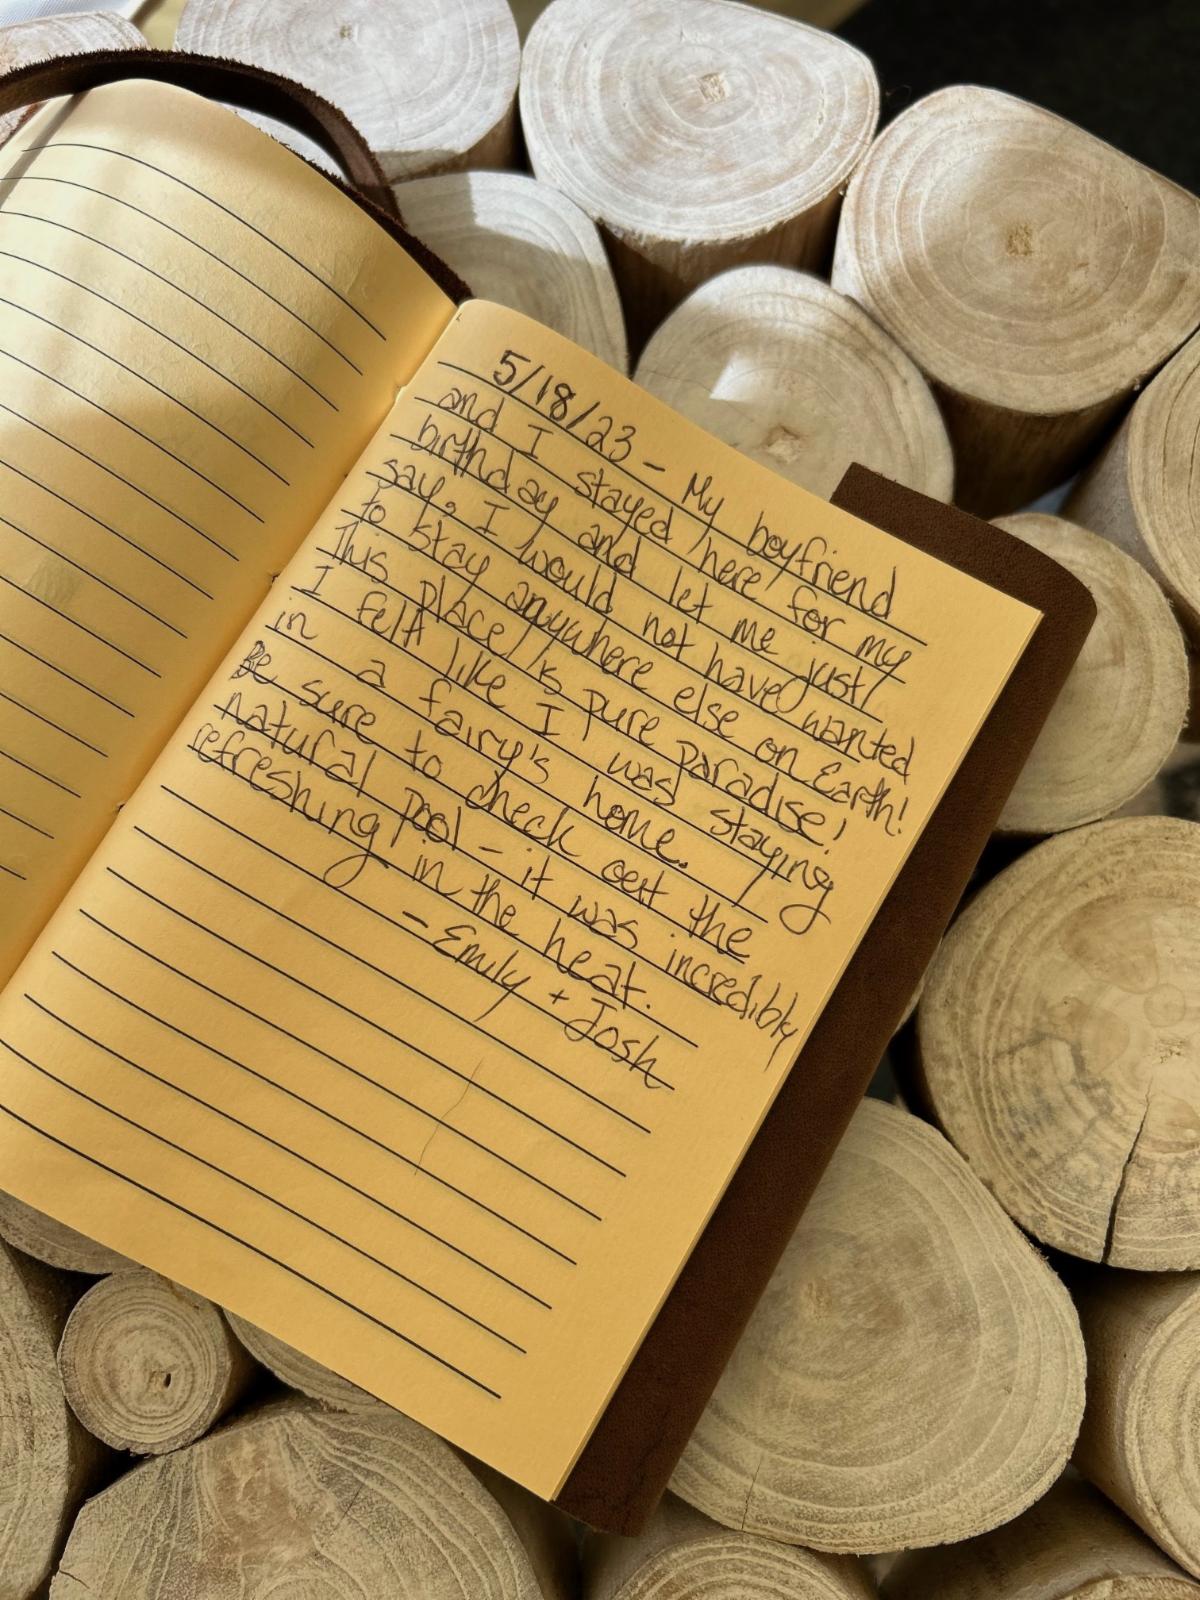 5/18/23 - My boyfriend
and I stayed here for my
birthday and let me just
say, I would not have wanted
to stay anywhere else on Earth!
This place is pure paradise!
I felt like I was staying
in a fairy's home.
Be sure to check out the
natural pool - it was incredibly
refreshing in the heat.
- Emily + Josh